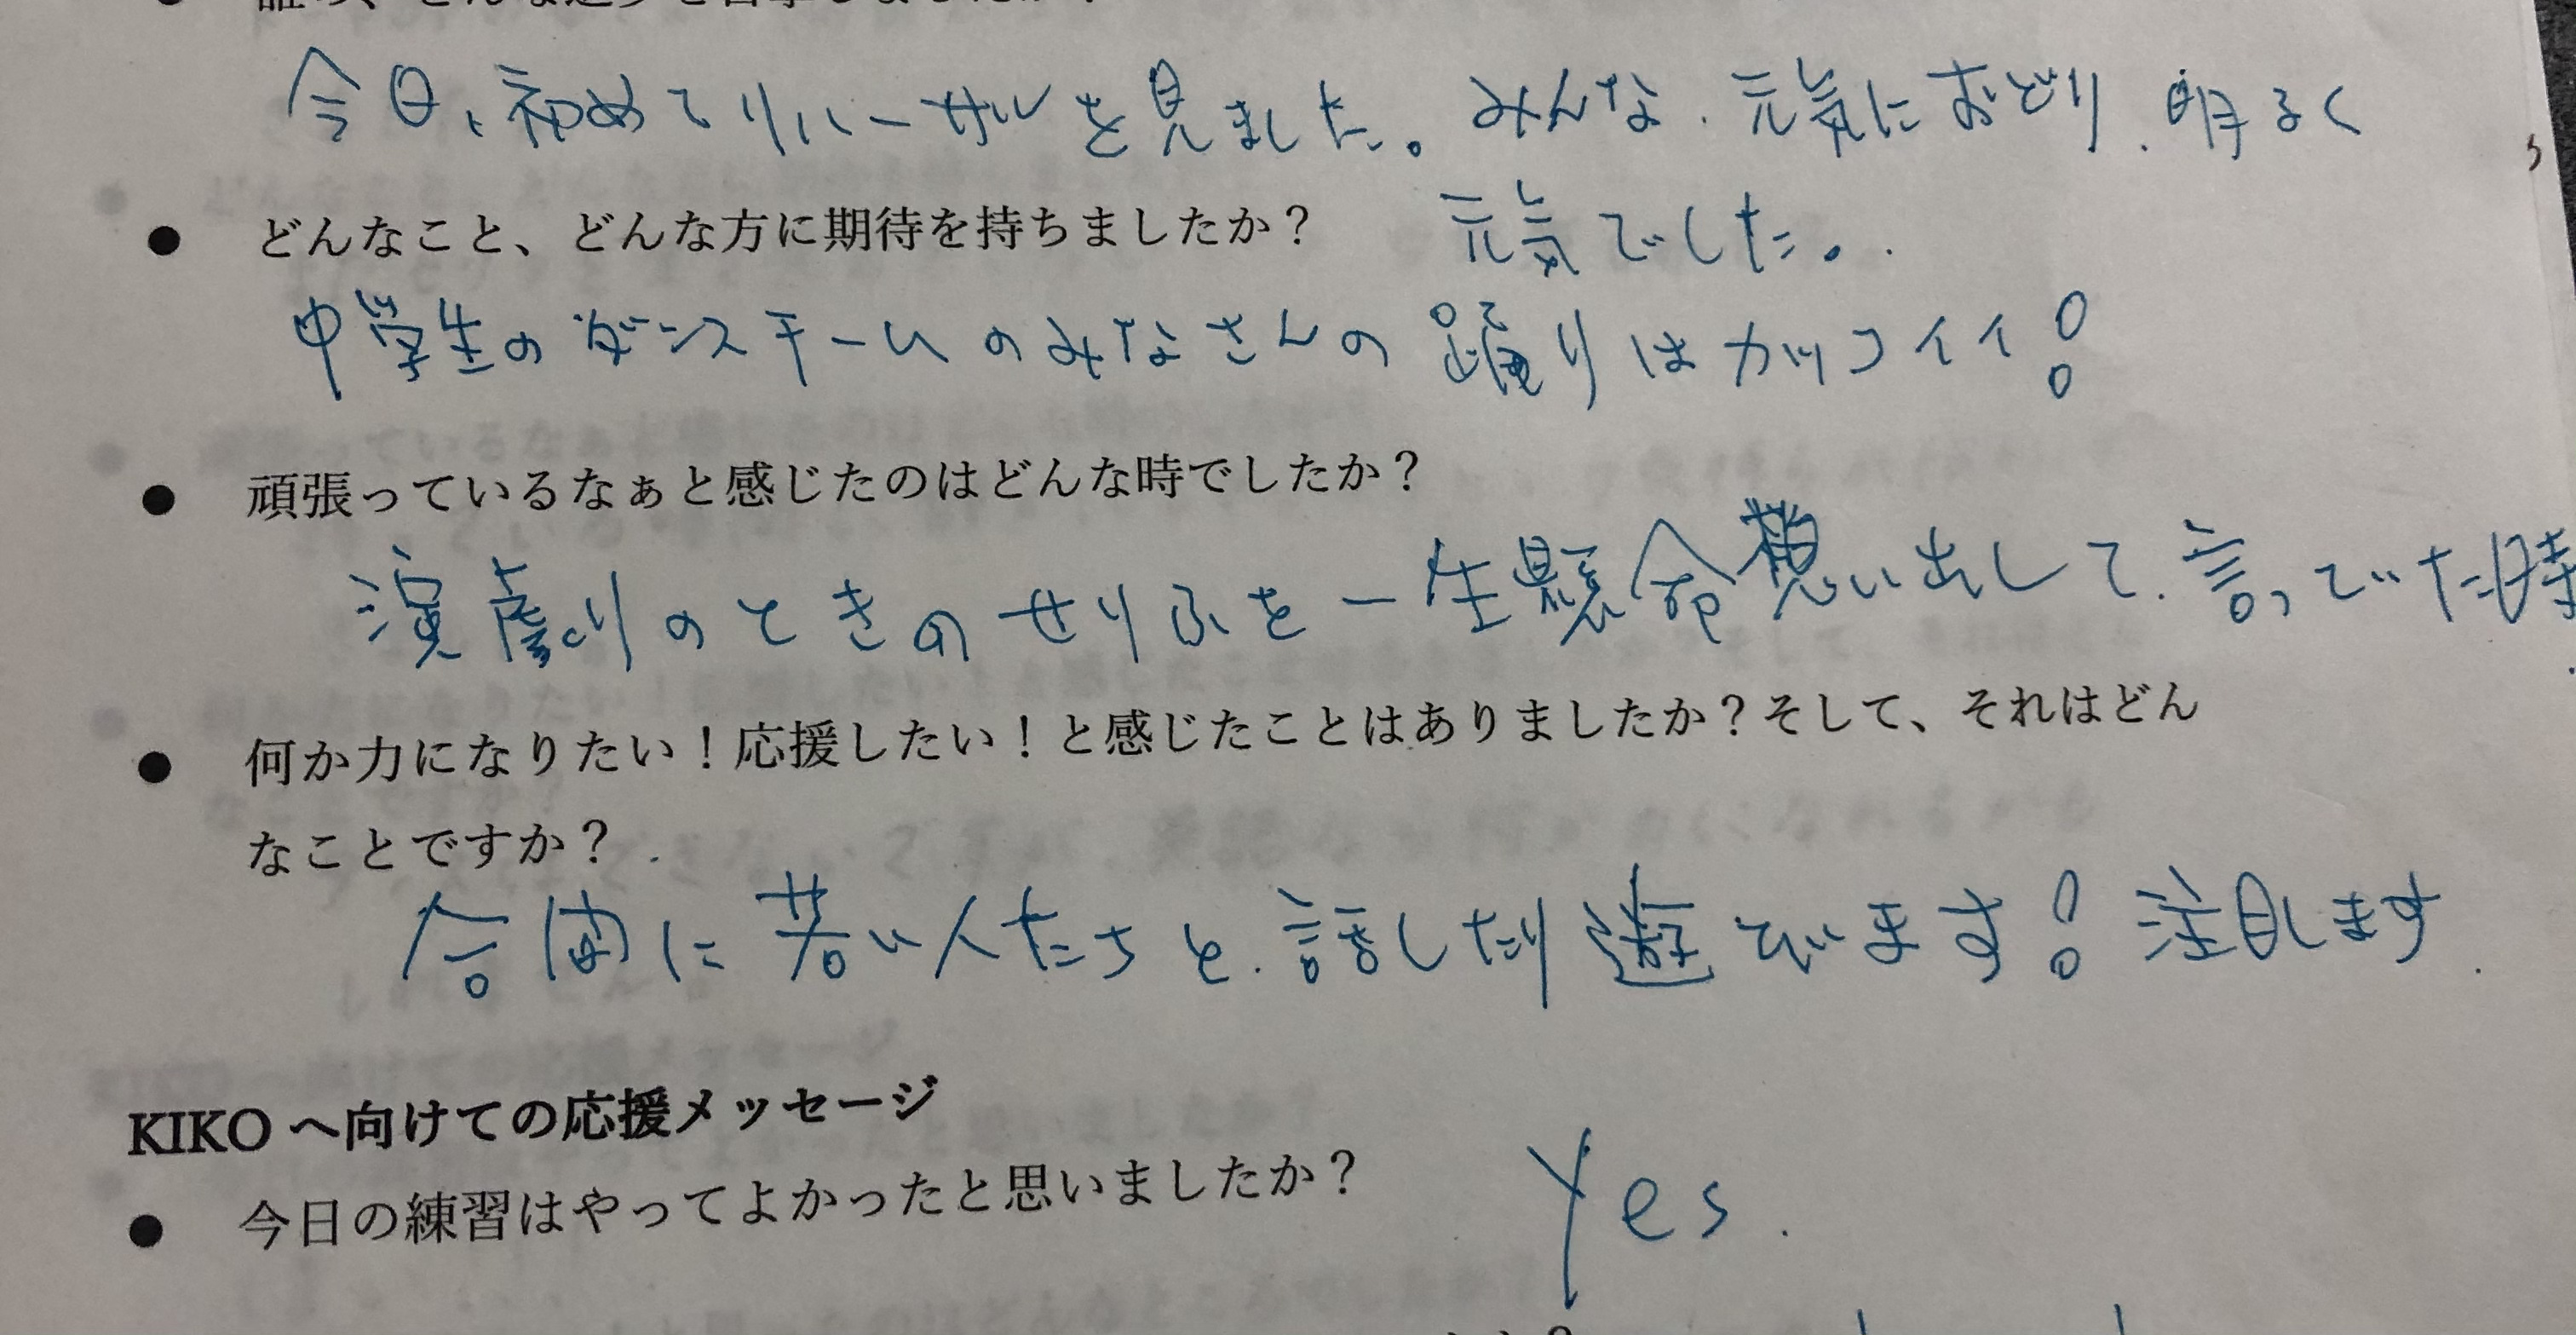 今日、初めてリハーサルを見ました。みんな、元気におどり、明るく
● どんなこと、どんな方に期待を持ちましたか？ 元気でした。
中学生のダンスチームのみなさんの踊りはカッコイイ！
● 頑張っているなぁと感じたのはどんな時でしたか？
演劇のときのせりふを一生懸命想い出して、言ってた時
● 何か力になりたい！応援したい！と感じたことはありましたか？そして、それはどん
なことですか？
合間に若い人たちと、話したり遊びます！注目します
KIKO へ向けての応援メッセージ
● 今日の練習はやってよかったと思いましたか？ Yes.